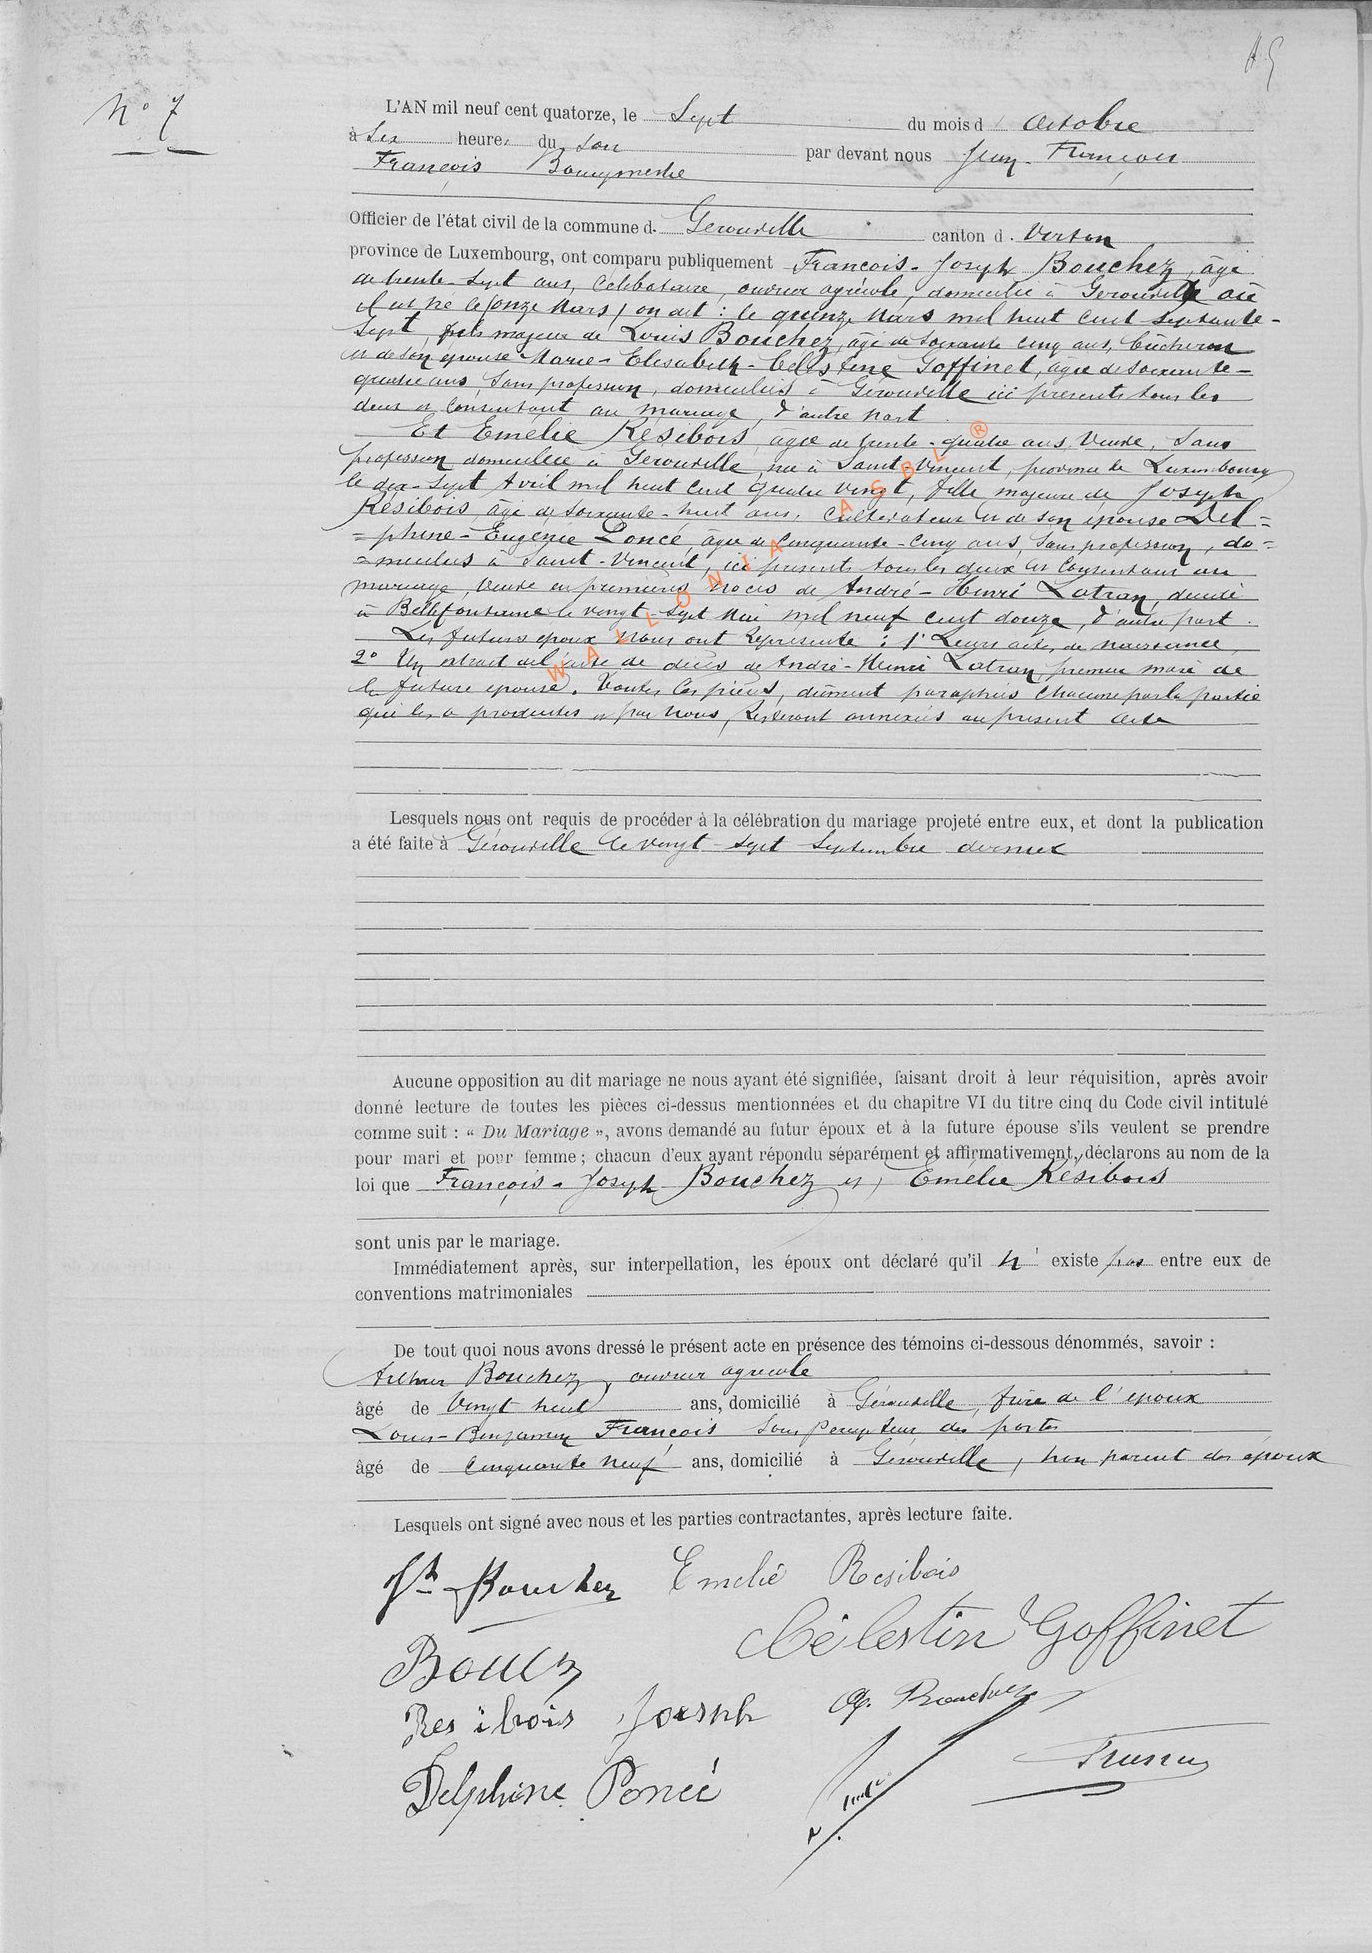 N° 7
L'AN mil neuf cent quatorze, le Sept du mois d'octobre
à Six heures du soir par devant nous Jean-François
François Bourgmestre
Officier de l'état civil de la commune d. Gérouville canton d. Virton
province de Luxembourg, ont comparu publiquement François-Joseph Bouchez, âgé
de trente-sept ans, célibataire, ouvrier agricole, domicilié à Gérouville où
il est né le (onze Mars) on dit : le quinze Mars mil huit cent septante-
sept, fils majeur de Louis Bouchez, âgé de soixante cinq ans, bûcheron
et de son épouse Marie-Elisabeth-Célestine Goffinet, âgée de soixante-
quatre ans, sans profession, domiciliés à Gérouville ici présents tous les
deux et consentant au mariage, d'autre part
Et Emélie Résibois, âgée de trente-quatre ans, Veuve, Sans
profession domiciliée à Gérouville, née à Saint-Vincent, province de Luxembourg
le dix-sept Avril mil huit cent quatre vingt, fille majeure de Joseph
Résibois âgé de soixante-huit ans, Cultivateur et de son épouse Del=
=phine-Eugénie Poncé, âgée de cinquante-cinq ans, sans profession, do=
=miciliés à Saint-Vincent, ici présents tous les deux et consentant au
mariage, veuve en premières noces de André-Henri Latran, décédé
à Bellefontaine le vingt-sept Mai mil neuf cent douze, d'autre part.
Les futurs époux nous ont représenté : 1° Leurs actes de naissance,
2° Un extrait de l'acte de décès de André-Henri Latran, premier mari de
la future épouse. Toutes ces pièces, dûment paraphées chacune par la partie
qui les a produites et par nous, resteront annexées au présent acte
WALLONIA ASBL ®
Lesquels nous ont requis de procéder à la célébration du mariage projeté entre eux, et dont la publication
a été faite à Gérouville le vingt-sept Septembre dernier
Aucune opposition au dit mariage ne nous ayant été signifiée, faisant droit à leur réquisition, après avoir
donné lecture de toutes les pièces ci-dessus mentionnées et du chapitre VI du titre cinq du Code civil intitulé
comme suit : « Du Mariage », avons demandé au futur époux et à la future épouse s'ils veulent se prendre
pour mari et pour femme ; chacun d'eux ayant répondu séparément et affirmativement, déclarons au nom de la
loi que François-Joseph Bouchez et Emélie Résibois
sont unis par le mariage.
Immédiatement après, sur interpellation, les époux ont déclaré qu'il n' existe pas entre eux de
conventions matrimoniales
De tout quoi nous avons dressé le présent acte en présence des témoins ci-dessous dénommés, savoir :
Arthur Bouchez, ouvrier agricole
âgé de Vingt huit ans, domicilié à Gérouville, frère de l'époux
Louis-Benjamin François Sous percepteur des postes
âgé de Cinquante neuf ans, domicilié à Gérouville, non parent des époux
Lesquels ont signé avec nous et les parties contractantes, après lecture faite.
Jh Bouchez Emelie Resibois
Célestin Goffinet
Résibois Joseph A. Bouchez
Delphine Poncé